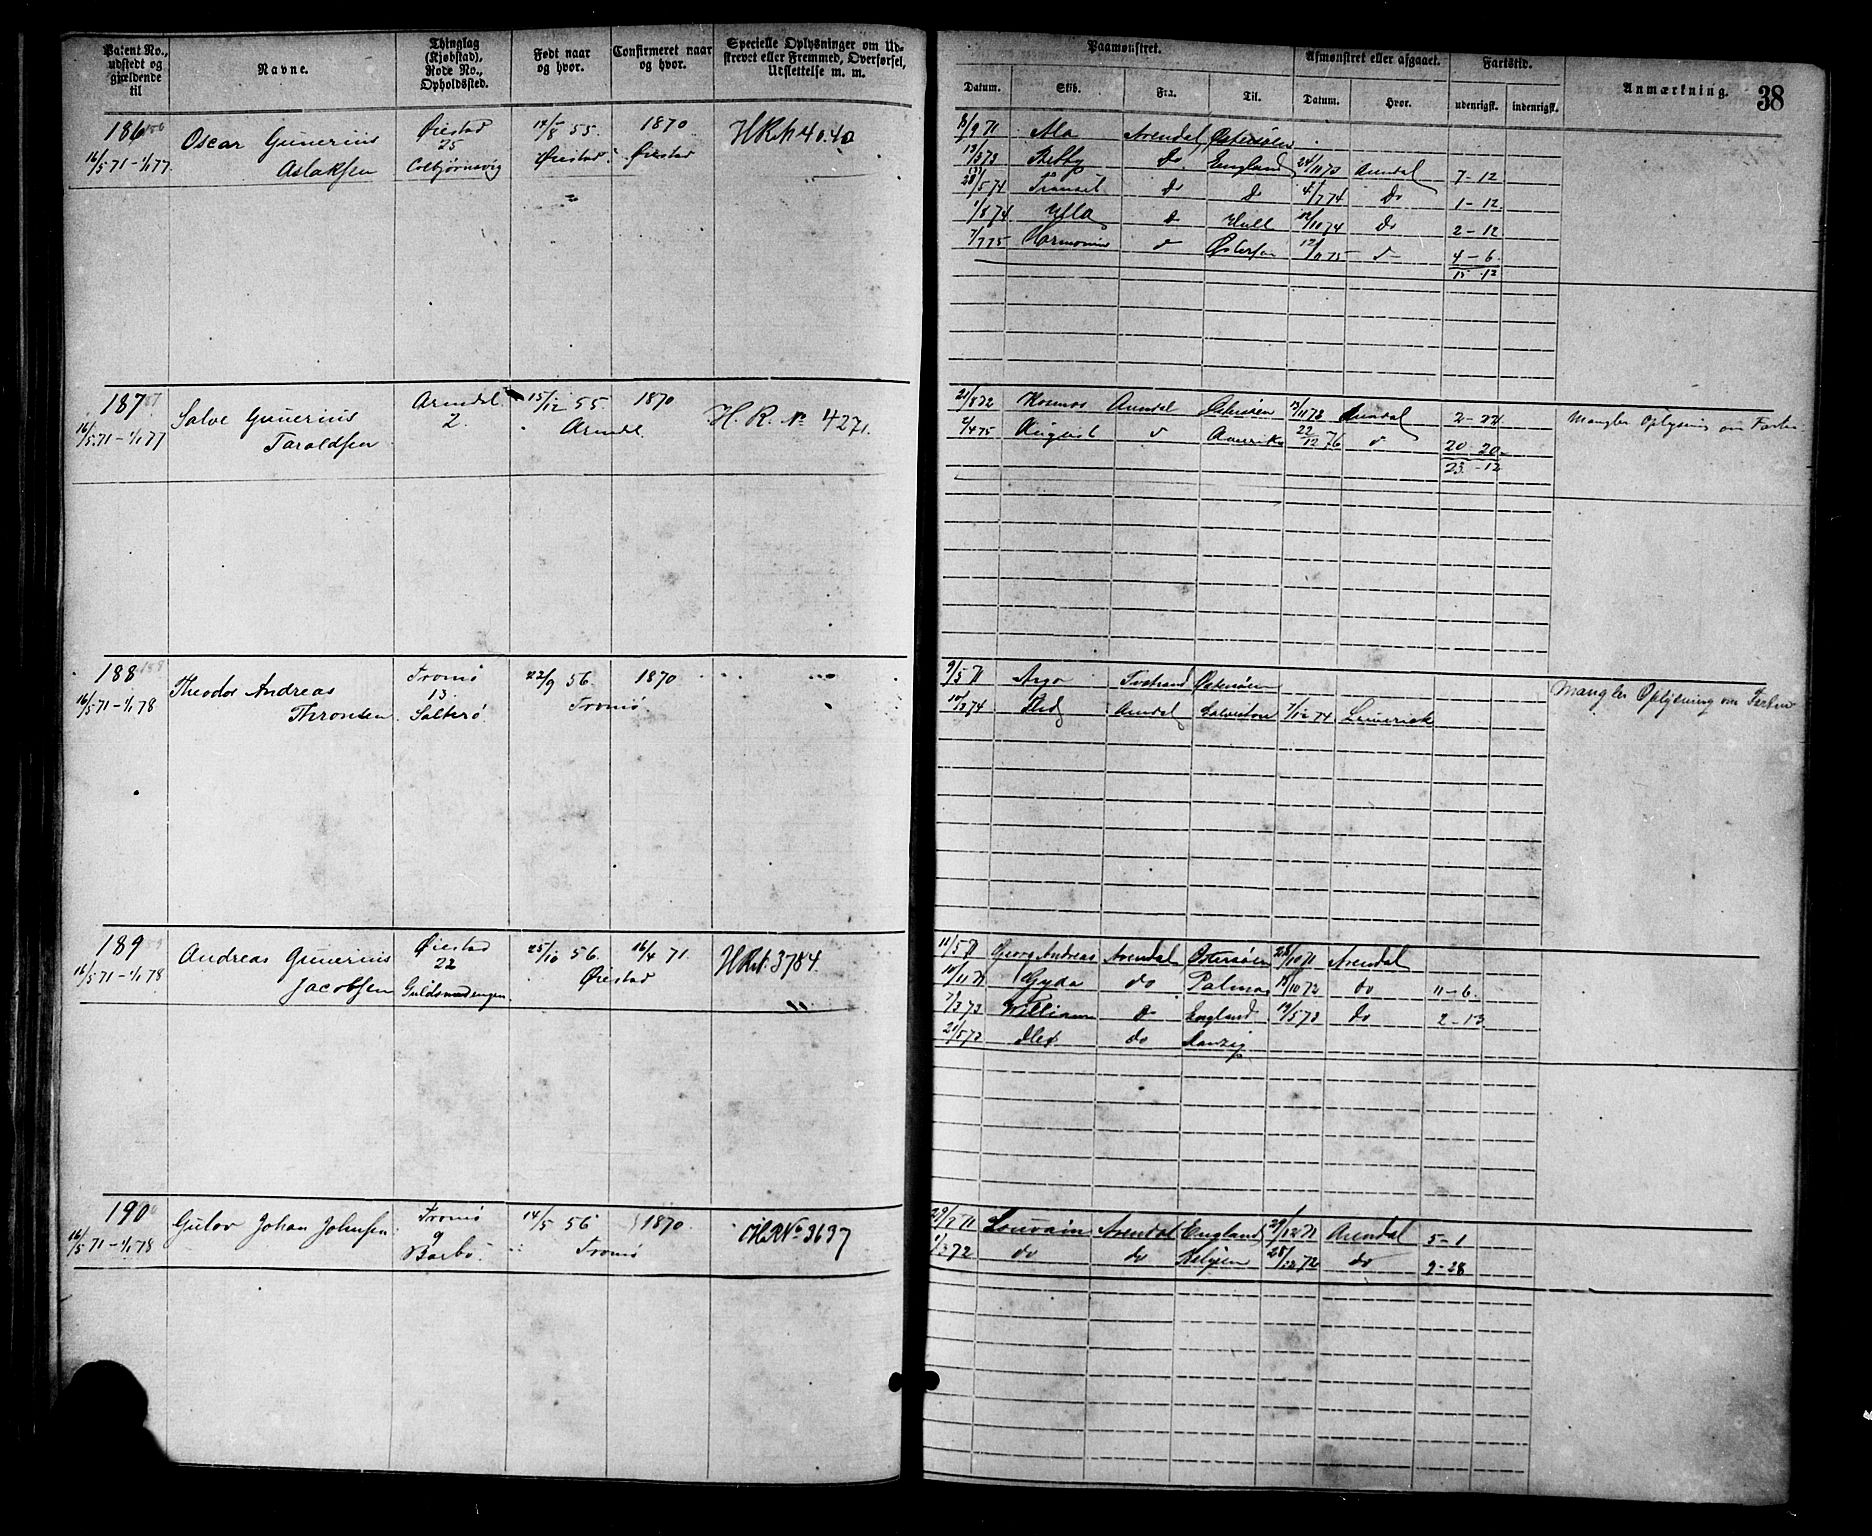 Patent No., udstedt og gjældende til
Navne.
Thinglag (Kjøbstad), Rode No., Opholdssted.
Født naar og hvor.
Confirmeret naar og hvor.
Specielle Oplysninger om Udskrevet eller Fremmed, Overførsel, Udslettelse m. m.
Paamønstret.
Afmønstret eller afgaaet.
Fartstid.
Anmærkning.
38
Datum.
Skib.
Fra.
Til.
Datum.
Hvor.
udenrigsk.
indenrigsk.
186
16/5 71 - 1/1 77
Oscar Gunerius
Aslaksen
Øiestad
25
Colbjørnsvig
14/8 55.
Øiestad
1870
Øiestad
H R № 4040
8/9 71 Ala Arendal Østersøen
13/5 73 Betty do England 24/10 73 Arendal 7-12
28/5 74 Transit do do 4/7 74 do 1-12
1/8 74 Ylla do Hull 12/10 74 do 2-12
7/7 75 Harmonie Østersøen 12/11 75 4-6
15-12
187
16/5 71 - 1/1 77
Salve Gunerius
Taraldsen
Arendal
2.
15/12 55.
Arendl.
1870
H. R. № 4271.
21/8 72 Kosmos Arendal Østersøen 13/11 72 Arendal 2-22
5/4 75 August Amerika 22/12 76 20-20
23-12
Mangler Oplysning om Farten
188
16/5 71 - 1/1 78
Theodor Andreas
Thronsen
Tromø
13.
Salterø
22/9 56.
Tromø
1870
9/5 71 Argo Tvedestrand Østersøen
10/3 74 Arendal Galveston 7/12 74 Limerick
Mangler Oplysning om Farten
189
16/5 71 - 1/1 78
Andreas Gunerius
Jacobsen
Øiestad
22
Guldsmedengen
25/10 56.
Øiestad
16/4 71.
H R № 3784.
11/5 71 Georg Andreas Arendal Østersøen 28/10 71 Arendal
10/11 71 Gyda do Palmas 18/10 72 do 11-6.
7/3 73 William do England 19/5 73 do 2-13
21/5 73 Alex do Danzig
190
16/5 71 - 1/1 78
Gulov Johan Johnsen
Tromø
9
Barbo
14/5 56
Tromø
1870.
H R № 3637
29/7 71 Louvain Arendal England 29/12 71 Arendal 5-1
1/3 72 do do Belgien 28/12 72 do 9-28